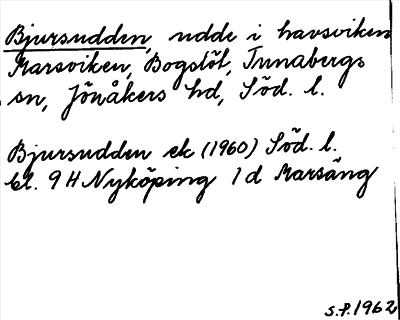 Bjursudden, udde i havsviken
Marsviken, Bogslöt, Tunabergs
sn, Jönåkers hd, Söd. l.
Bjursudden ek (1960) Söd. l.
bl. 9 H Nyköping 1 d Marsäng
S.P. 1962